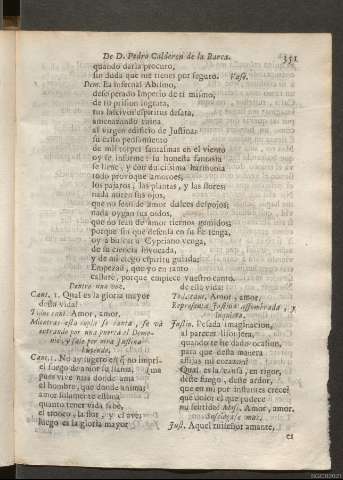 De D. Pedro Calderon de la Barca. 351
quando daria procuro,
sin duda que me tienes por seguro. Vase.
Dem. Ea infernal Abismo,
desesperado Imperio de ti mismo,
de tu prision ingrata,
tus lascivos espiritus desata,
amenazando ruina
al virgen edificio de Justina:
su casto pensamiento
de mil torpes fantasmas en el viento
oy se informe: su honesta fantasia
se llene, y con dulcissima harmonia
todo provoque amores,
los pajaros, las plantas, y las flores;
nada miren sus ojos,
que no sean de amor dulces despojos;
nada oygan sus oidos,
que no sean de amor tiernos gemidos;
porque sin que defensa en su Fè tenga,
oy à buscar à Cypriano venga,
de su ciencia invocada,
y de mi ciego espiritu guiada:
Empezad, que yo en tanto
callarè, porque empiece vuestro canto.
Dentro una voz.
Cant. 1. Qual es la gloria mayor
desta vida?
Todos cant. Amor, amor.
Mientras esta copla se canta, se và
entrando por una puerta el Demonio,
y sale por otra Justina
huyendo.
Cant. 1. No ay sugeto en quien no imprima
el fuego de amor su llama,
pues vive mas donde ama
el hombre, que donde anima:
amor solamente estima
quanto tener vida sabe,
el tronco, la flor, y el ave;
luego es la gloria mayor
de esta vida:
Tod. cant. Amor, amor.
Representa Justina assombrada, y
inquieta.
Justin. Pesada imaginacion,
al parecer lisonjera,
quando te he dado ocasion,
para que desta manera
aflijas mi corazon?
Qual es la causa, en rigor,
deste fuego, deste ardor,
que en mi por instantes crece?
què dolor el que padece
mi sentido? Music. Amor, amor.
Sossiegase mas.
Just. Aquel ruiseñor amante,
es